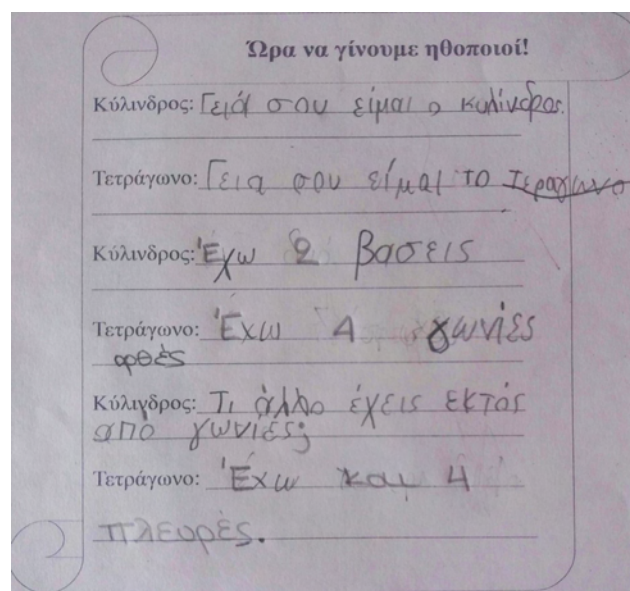 Ώρα να γίνουμε ηθοποιοί!
Κύλινδρος: Γειά σου είμαι ο κυλίνδρος.
Τετράγωνο: Γεια σου είμαι το τεραγωνο
Κύλινδρος: Έχω 2 βασεις
Τετράγωνο: Έχω 4 γωνίες
ορθές
Κύλινδρος: Τι άλλο έχεις εκτός
από γωνίες;
Τετράγωνο: Έχω και 4
πλευρές.